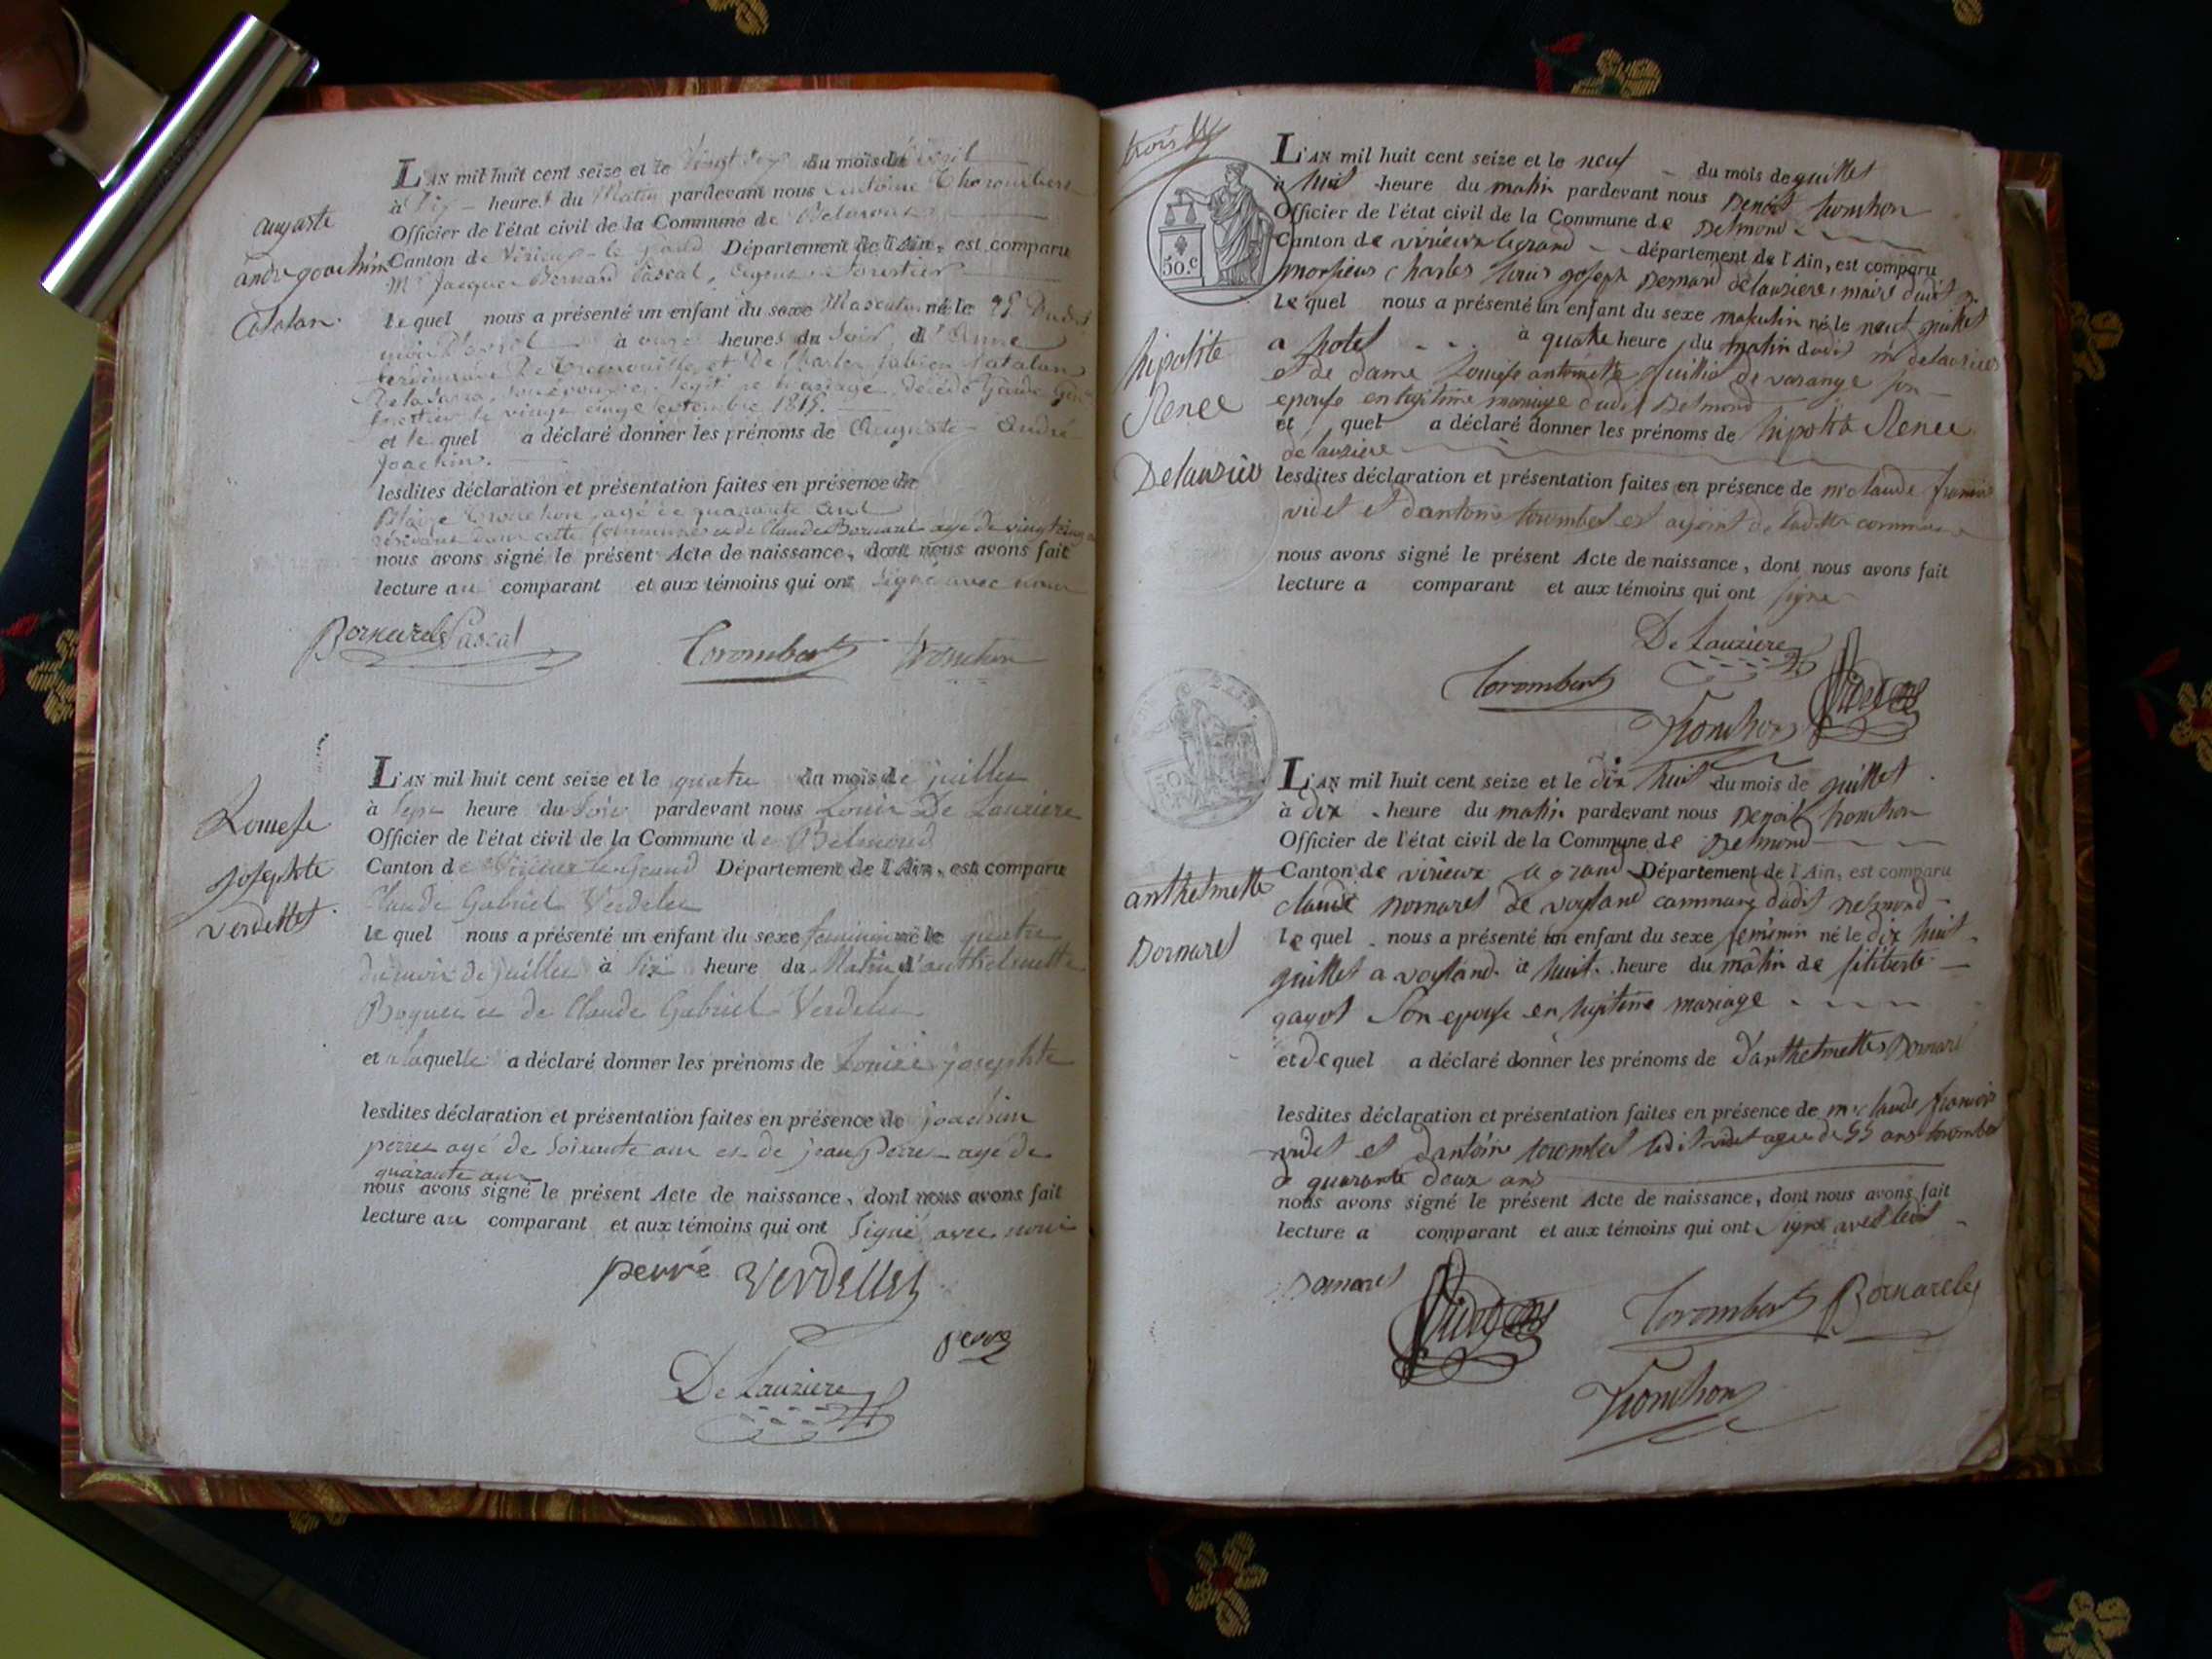 auguste
andré goachim
Catalan.
L'AN mil huit cent seize et le vingt six du mois d'avril
à dix heures du Matin pardevant nous antoine Thorombert
Officier de l'état civil de la Commune de Belmont
Canton de Virieux-le grand Département de l'Ain, est comparu
Mr Jacques Bernard Pascal, Forestier
lequel nous a présenté un enfant du sexe Masculin né le 25 Dudit
mois d'avril à onze heures du Soir, d'Anne
et De Charles fabien Catalan
mariage, décédé Garde Général
forestier le vingt cinq septembre 1815.
et lequel a déclaré donner les prénoms de Auguste André
Joachim.
lesdites déclaration et présentation faites en présence de
Blaise Tronchon, agé de quarante ans
dans cette Commune et de Claude Bornarel agé de vingt cinq ans
nous avons signé le présent Acte de naissance, dont nous avons fait
lecture au comparant et aux témoins qui ont signé avec nous
Bornarel Pascal Torombert tronchon
Louese
Josephte
verdellet
L'AN mil huit cent seize et le quatre du mois de juillet
à sept heure du Soir pardevant nous Louis De Lauziere
Officier de l'état civil de la Commune de Belmond
Canton de Virieux le grand Département de l'Ain, est comparu
Claude Gabriel Verdelet
lequel nous a présenté un enfant du sexe feminin né le quatre
du mois de juillet à six heure du Matin d'anthelmette
et de Claude Gabriel Verdelet
et a laquelle a déclaré donner les prénoms de Louise josephte
lesdites déclaration et présentation faites en présence de joachim
perret agé de Soixante ans et de jean Perret agé de
quarante ans
nous avons signé le présent Acte de naissance, dont nous avons fait
lecture au comparant et aux témoins qui ont Signé avec nous
perré Verdellet
perré
De Lauziere
trois
50.c
hipolite
Renee
Delauzier
L'AN mil huit cent seize et le neuf du mois de guillet
à huit heure du matin pardevant nous Benoit tronchon
Officier de l'état civil de la Commune de Belmond
Canton de virieux le grand département de l'Ain, est comparu
monsieur charles louis goseph Bernard delauziere, maire dudit
lequel nous a présenté un enfant du sexe maskulin né le neuf guillet
a hotel à quatre heure du matin dudit mr delauziere
et de dame Louise antoinette guillio de varange son
epouse en legitime mariage dudit Belmond
et quel a déclaré donner les prénoms de hipolite Renee
delauziere
lesdites déclaration et présentation faites en présence de mr claude francois
videt et dantoine torombert adjoint de laditte commune
nous avons signé le présent Acte de naissance, dont nous avons fait
lecture a comparant et aux témoins qui ont signe
De Lauziere
Torombert Videt
Tronchon
anthelmette
Bornarel
L'AN mil huit cent seize et le dix huit du mois de guillet
à dix heure du matin pardevant nous Benoit tronchon
Officier de l'état civil de la Commune de Belmond
Canton de virieux le grand Département de l'Ain, est comparu
claude Bornarel de voyland commune dudit Belmond
lequel nous a présenté un enfant du sexe feminin né le dix huit
guillet a voyland à huit heure du matin de filiberte
gayot Son epouse en legitime mariage
et de quel a déclaré donner les prénoms de d'anthelmette Bornarel
lesdites déclaration et présentation faites en présence de mr claude francois
videt et dantoine torombert ledit videt agee de 55 ans torombert
de quarante deux ans
nous avons signé le présent Acte de naissance, dont nous avons fait
lecture a comparant et aux témoins qui ont Signe avec ledit
Bornarel
Videt Torombert Bornarel
Tronchon